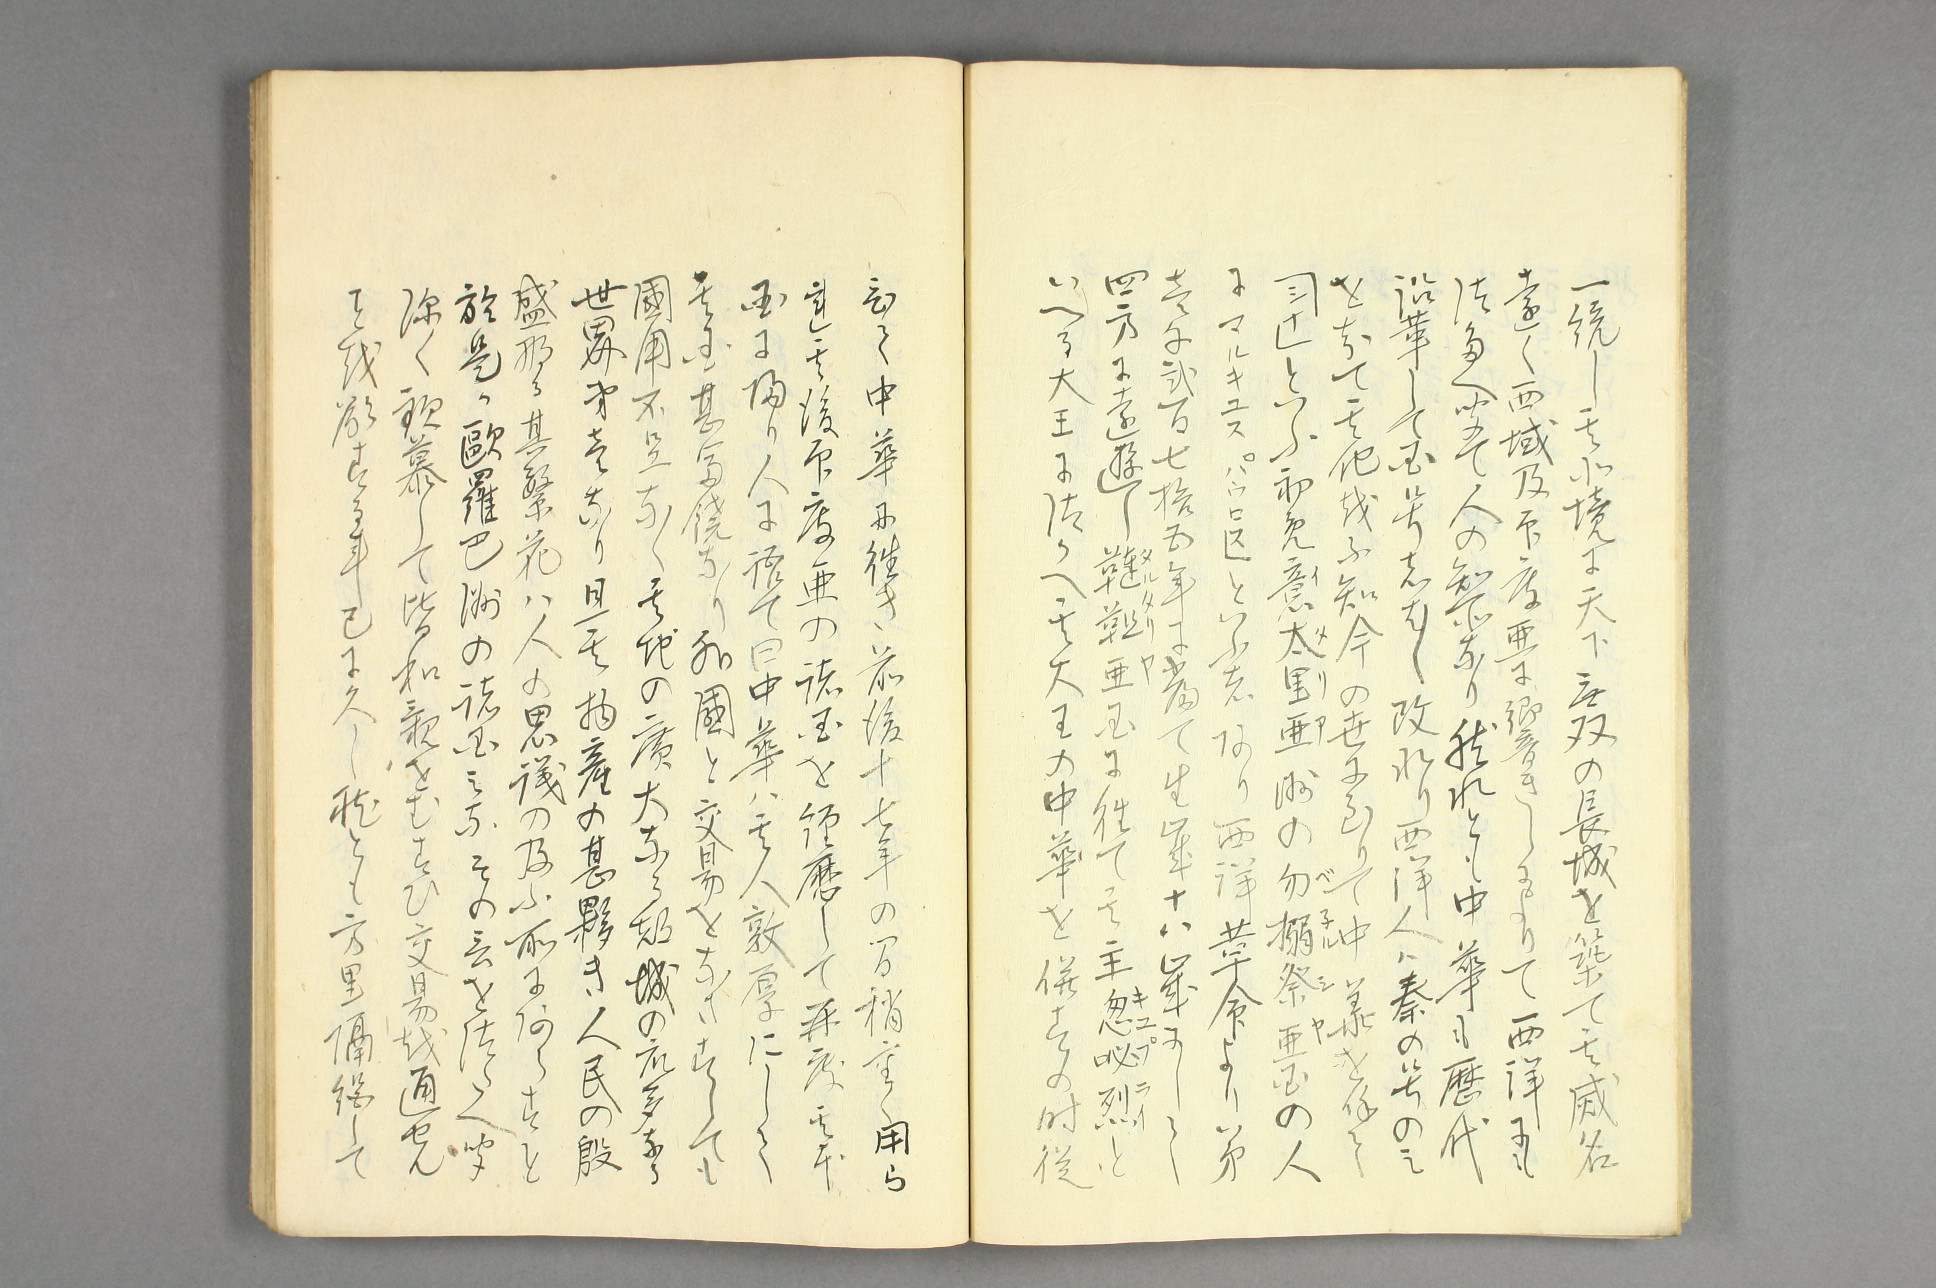 一統し其北境に天下無双の長城を築て其威名
遠く西域及印度亜に響きしよりて西洋にも
伝え聞て人の知所なり然れとも中華も歴代
沿革して国号もまた改れり西洋人ハ秦の号のミ
を知て其他を不知今の世に至りて中華を称して
シナといふ初免意太里亜洲の勿搦祭亜国の人
イタリヤ ベネルシヤ
にマルキユスパウロ○といふ者あり西洋革命より以第
壱千弐百七拾五年に当て生歳十八歳にして
四方に遠遊し韃靼亜国に往て其主忽必烈と
タルタリヤ キユプライ
いへる大王に仕へ其大王の中華を併するの時従
ひて中華に往き前後十七年の間稍重く用ら
連其後印度亜の諸国を経歴して再度其本
国に帰り人に語て曰中華ハ其人敦厚にして
其国甚富饒なり外国と交易をなさすしても
国用不足なく其地の廣大なる都城の衆多なる
世界第壱なり且其物産の甚夥き人民の殷
盛那る其繁花ハ人の思議の及ふ所にあらすと
於是歐羅巴洲の諸国ミなその言を伝え聞
深く歆慕して皆和親をむすひ交易を通せん
と越欲する事已に久し雖とも方里隔絶して